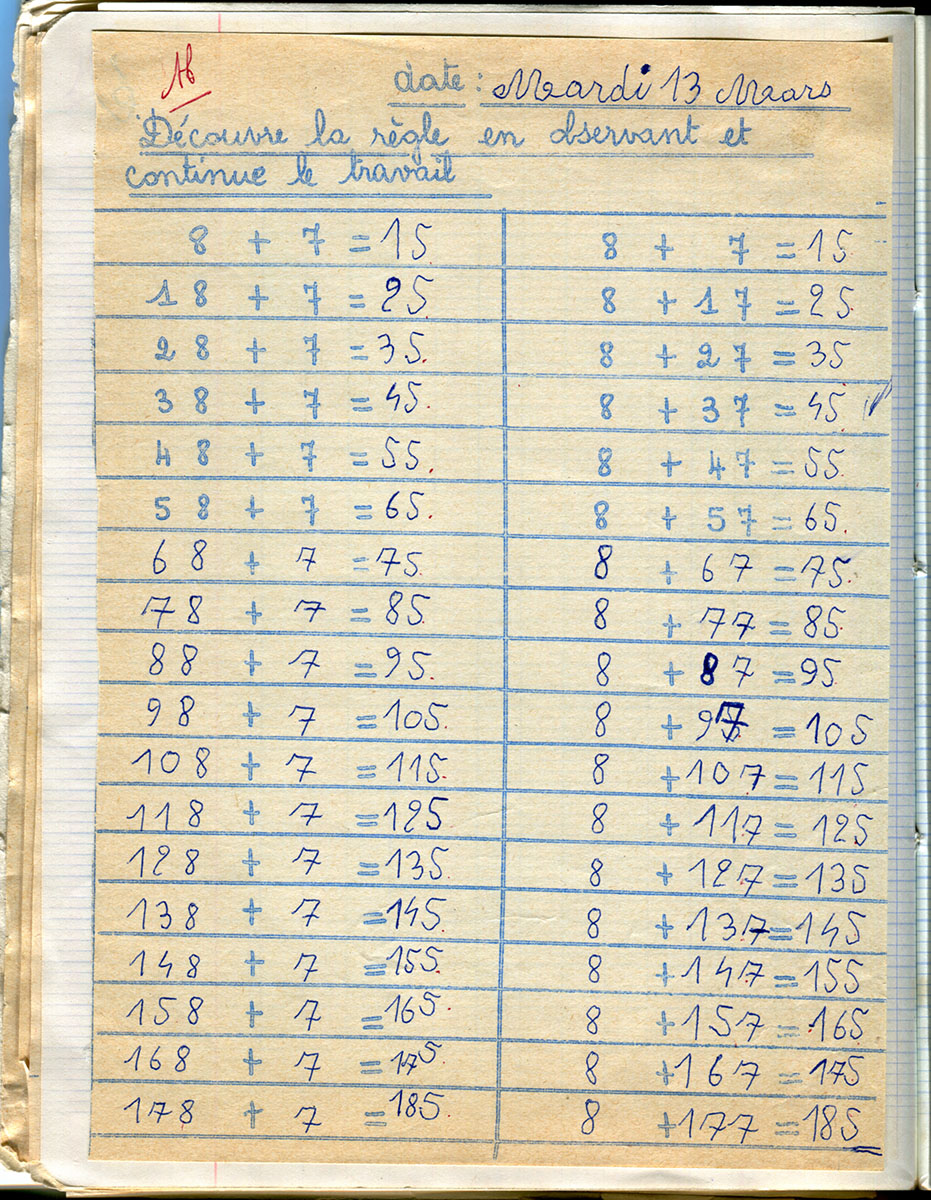 Ab
date: Mardi 13 Mars
Découvre la règle en observant et
continue le travail
8 + 7 = 15 8 + 7 = 15
18 + 7 = 25 8 + 17 = 25
28 + 7 = 35 8 + 27 = 35
38 + 7 = 45 8 + 37 = 45
48 + 7 = 55 8 + 47 = 55
58 + 7 = 65 8 + 57 = 65
68 + 7 = 75 8 + 67 = 75
78 + 7 = 85 8 + 77 = 85
88 + 7 = 95 8 + 87 = 95
98 + 7 = 105 8 + 97 = 105
108 + 7 = 115 8 + 107 = 115
118 + 7 = 125 8 + 117 = 125
128 + 7 = 135 8 + 127 = 135
138 + 7 = 145 8 + 137 = 145
148 + 7 = 155 8 + 147 = 155
158 + 7 = 165 8 + 157 = 165
168 + 7 = 175 8 + 167 = 175
178 + 7 = 185 8 + 177 = 185